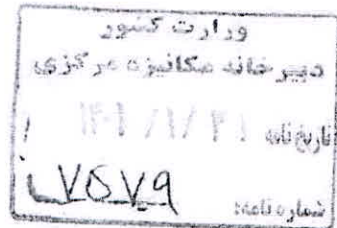 وزارت کشور
دبیرخانه مکانیزه مرکزی
تاریخ نامه
شماره نامه: ۷۵۷۹